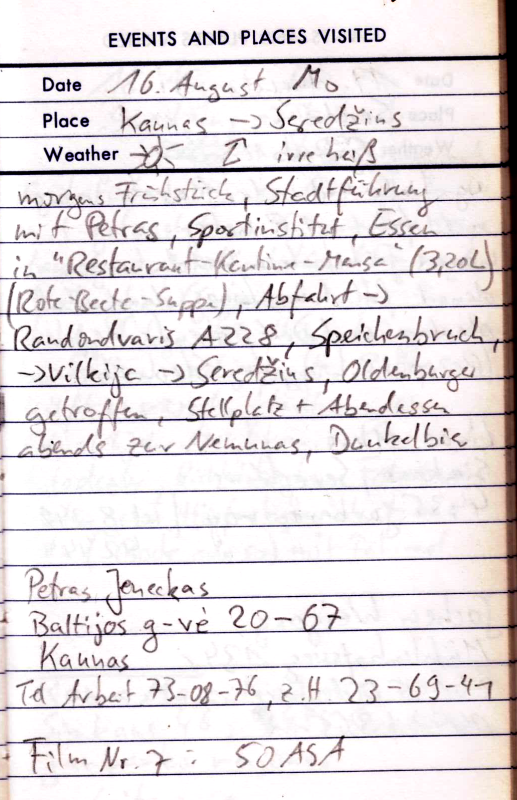 EVENTS AND PLACES VISITED
Date 16. August Mo
Place Kaunas -> Seredžius
Weather irre heiß
morgens Frühstück, Stadtführung
mit Petras, Sportinstitut, Essen
in "Restaurant-Kantine-Mensa" (3,20L)
(Rote Beete-Suppe), Abfahrt ->
Randondvaris A228, Speichenbruch,
-> Vilkija -> Seredžius, Oldenburger
getroffen, Stellplatz + Abendessen
abends zur Nemunas, Dunkelbier
Petras Jeneckas
Baltijos g-vė 20-67
Kaunas
Tel Arbeit 73-08-76, z.H. 23-69-41
Film Nr. 7: 50 ASA